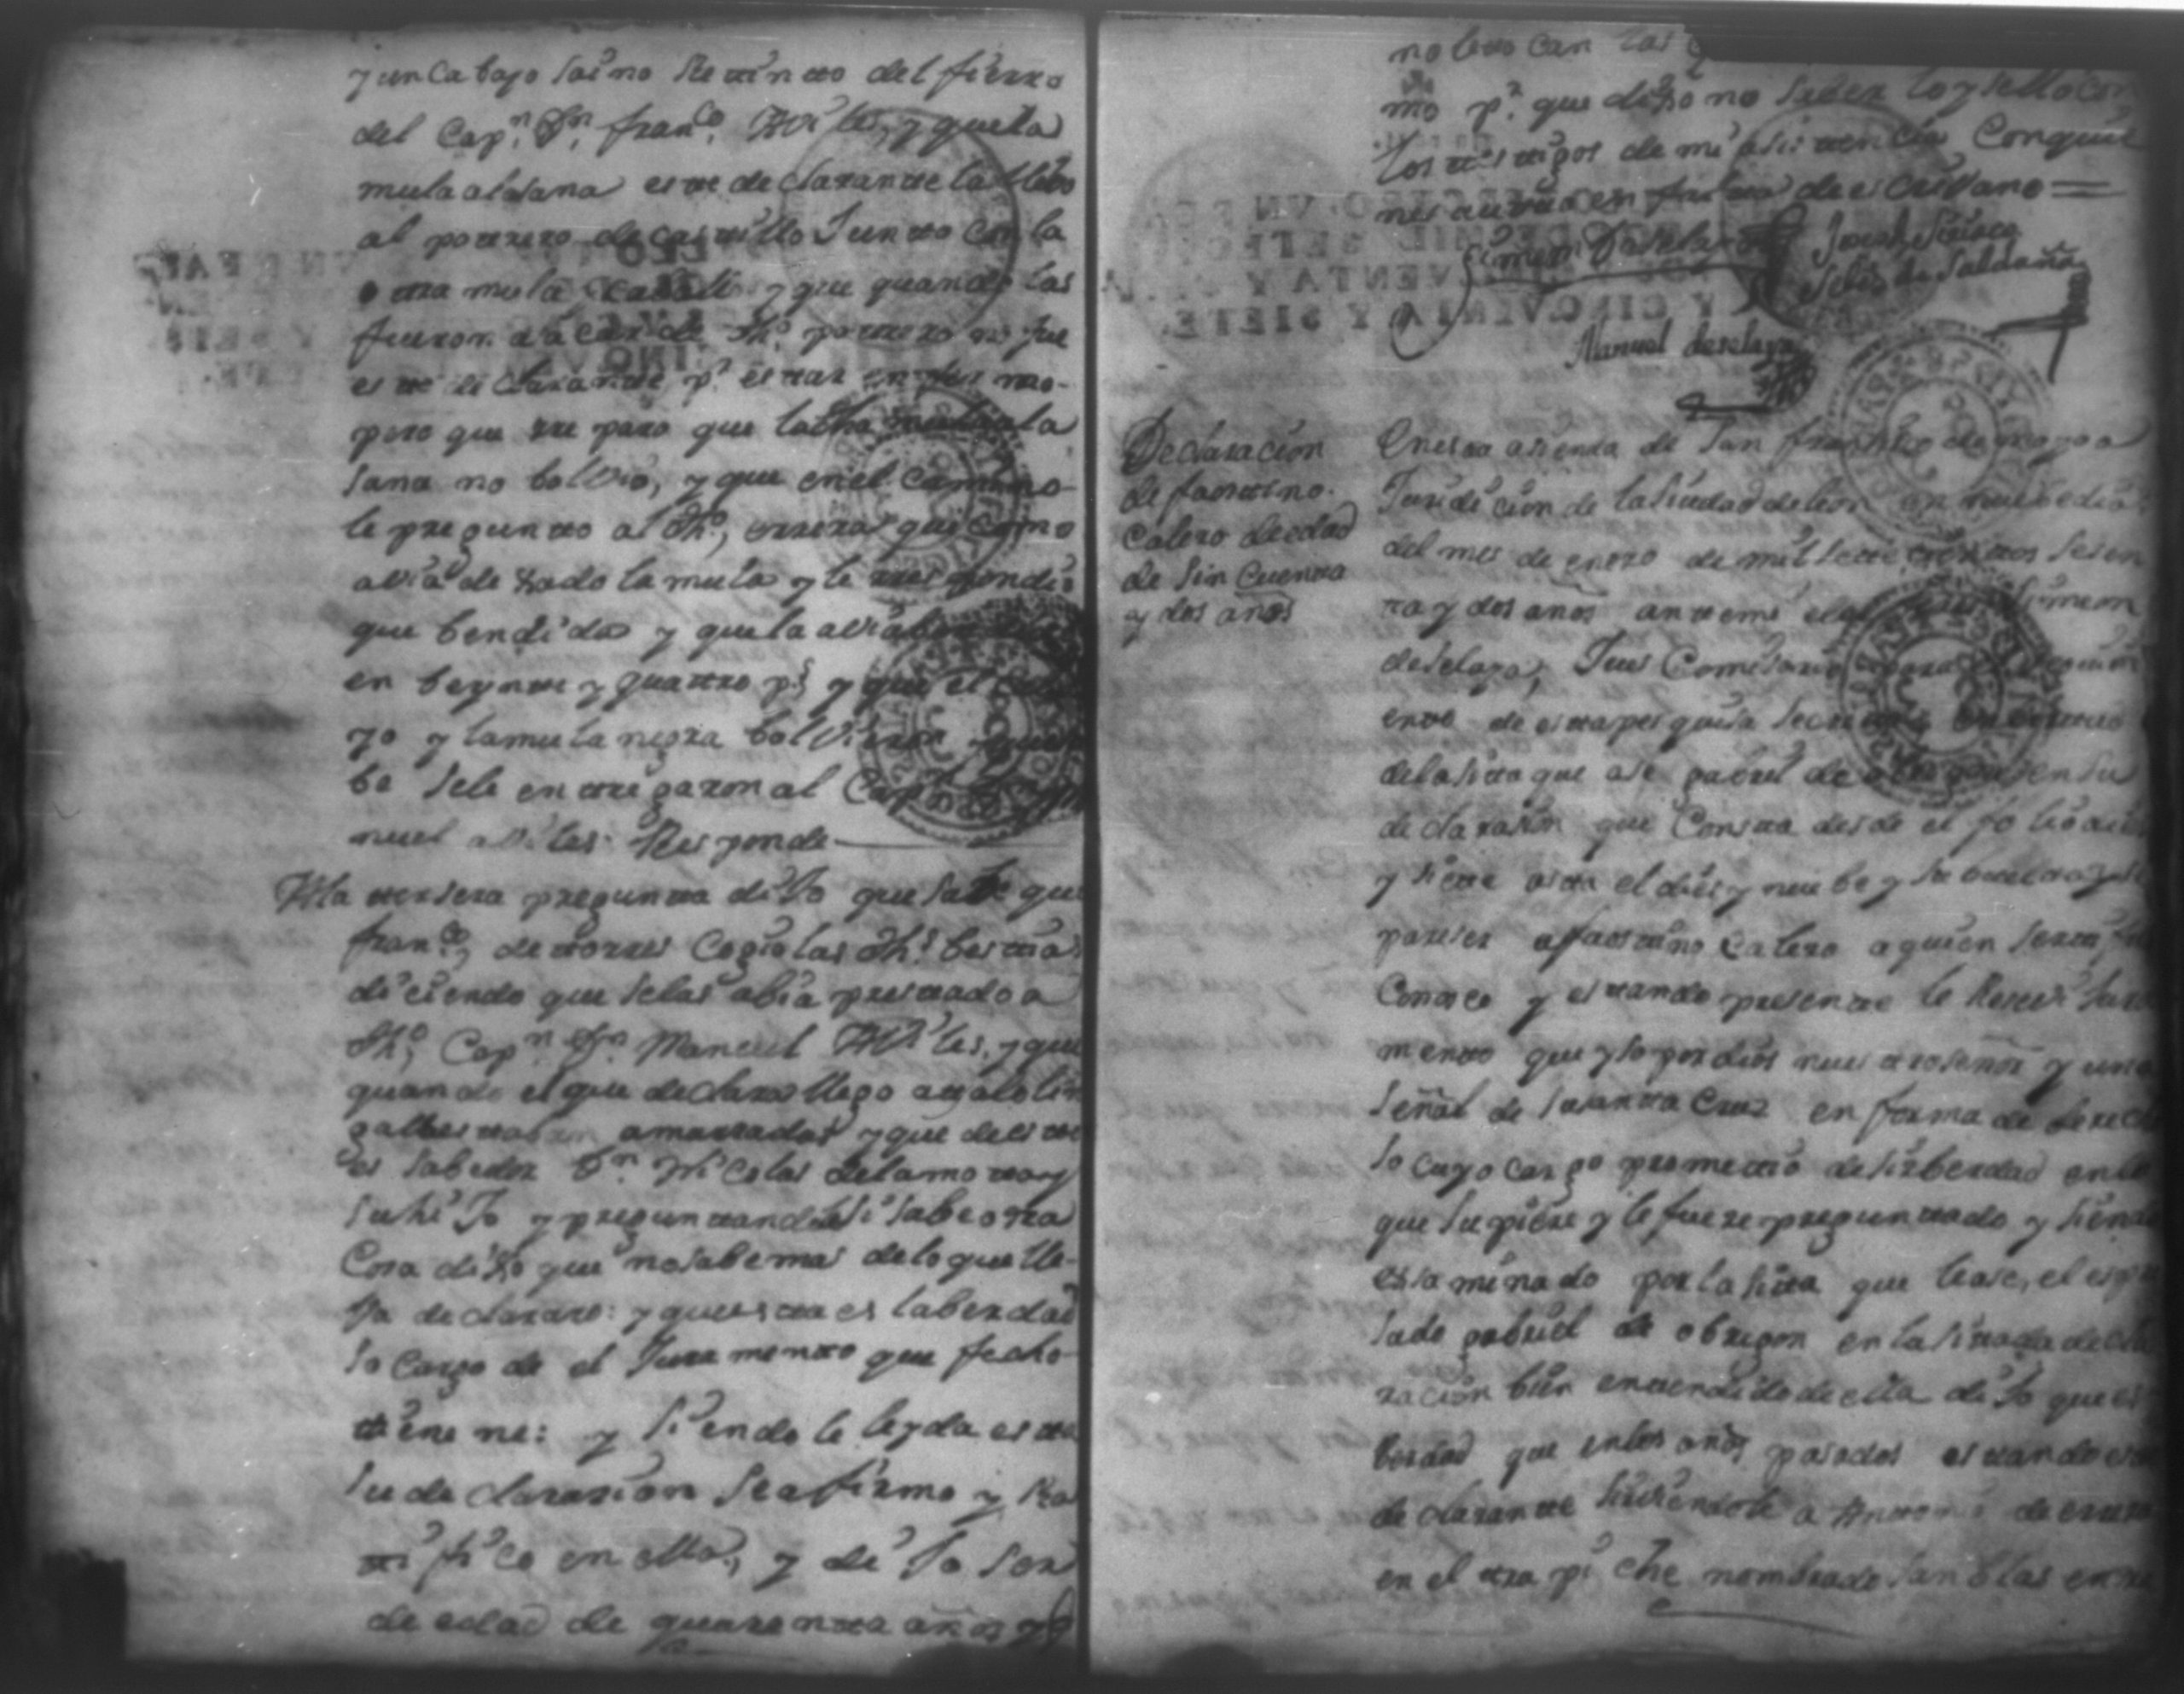 y un Cabayo saino retinto del fierro
del Capn. Dn. franco. Aviles, y que la
mula alasana este declarante la llebo
al potrero de castillo Junto con la
otra mula y caballo y que quando las
fueron a sacar de dho. potrero no fue
este declarante pr. estar enfermo
pero que reparo que la dha mula ala
sana no bolvio, y que en el camino
le pregunto al dho, errera que como
avia dexado la mula y le respondio
que bendida y que la avia
en beynte y quattro ps. y que el
yo y la mula negra bolvieron
be se le entregaron al Capn.
nuel aviles Responde
A la tersera pregunta dixo que sabe que
franco, de torres Cogio las dhs. bestias
disiendo que se las abia prestado a
dho, Capn. Dn. Manuel Aviles, y que
quando el que declara llego a
amarradas y que de este
es sabedor Dn. Nicolas de la mota y
su hiJo y preguntandole si sabe otra
Cosa dixo que no sabe mas de lo que lle-
ba declarado: y que esta es la berdad
so cargo de el Juramento que fecho
tiene ne: y siendo le leyda esta
su declarasion se afirmo y Ra
tifico en ella, y diJo ser
de edad de quarenta años y
no le tocan las
mo pr. que dixo no saber lo y sello con
los testigos de mi asistencia Con quie
nes autua en falta de escrivano =
Simeon Deselaya
Joseph Siriaco
Selis de Saldaña
Manuel deselaya
Declaracion
de faostino.
Calero de edad
de sin cuenta
y dos años
En esta asienda de San fransisco de
Juridicion de la siudad de leon en nuebe dias
del mes de enero de mil sete sientos sesen
ta y dos anos ante mi el Simeon
deselaya, Jues Comisario para
ento de esta pesquisa secreta en
de la sita que ase gabriel de obregon en su
declarasion que Consta desde el folio dies
y siete asta el dies y nuebe y su buelta
pareser a faostino Calero a quien sertifico
Conosco y estando presente le Resevi Jura
mento que yso por dios nuestro señor y una
señal de su santa Cruz en forma de derecho
so cuyo cargo prometio desir berdad en lo
que supiere y le fuere preguntado y siendo
essaminado por la sita que le ase, el espre
sado gabriel de obregon en la sitada decla
racion bien entendido de ella diJo que es
berdad que en los años pasados estando este
declarante sirviendole a Antonio de errera
en el trapiche nombrado san blas